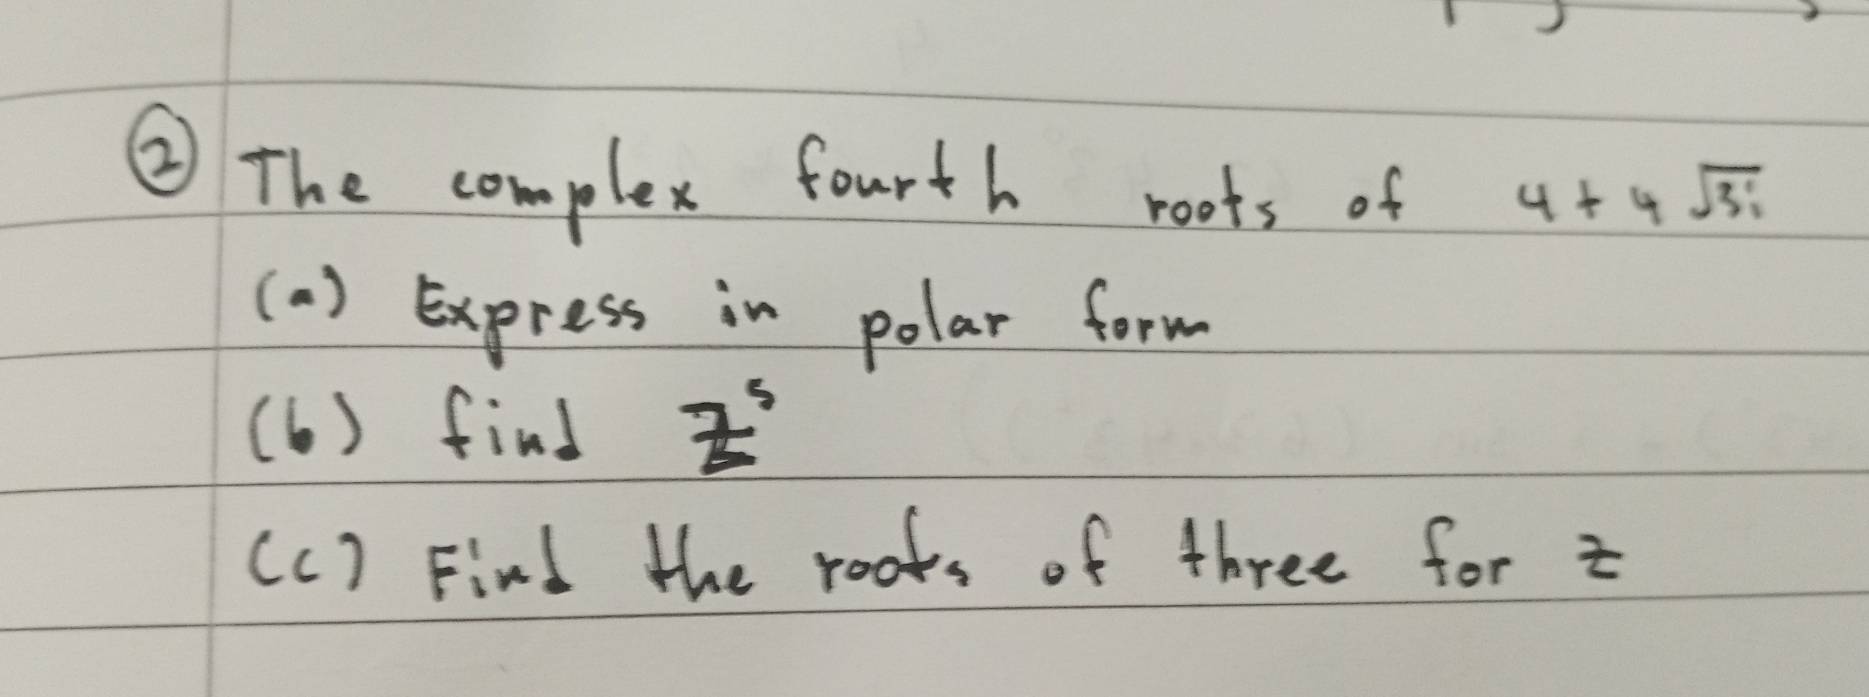 ② The complex fourth roots of 4 + 4 √3i
(a) Express in polar form
(b) find z⁵
(c) Find the roots of three for z